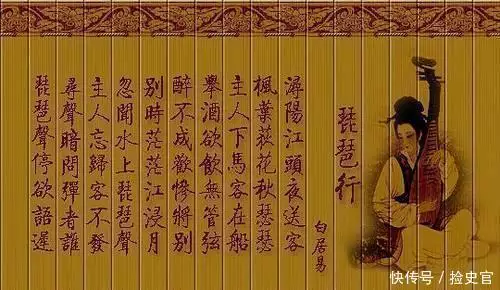 琵琶行
白居易
潯陽江頭夜送客
楓葉荻花秋瑟瑟
主人下馬客在船
舉酒欲飲無管弦
醉不成歡慘將別
別時茫茫江浸月
忽聞水上琵琶聲
主人忘歸客不發
尋聲暗問彈者誰
琵琶聲停欲語遲
快传号/捡史官